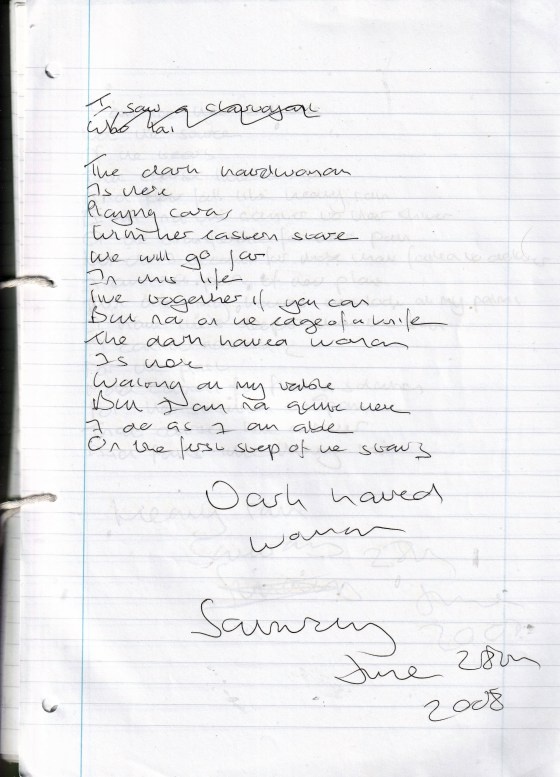 I saw a clairvoyant
Who
The dark haired woman
Is here
Playing cards
With her eastern stare
We will go far
In this life
Live together if you can
But not on the edge of a knife
The dark haired woman
Is here
on my table
But I am not quite here
I do as I am able
On the first step of the stairs
Dark haired
woman
Saturday
June 28th
2008